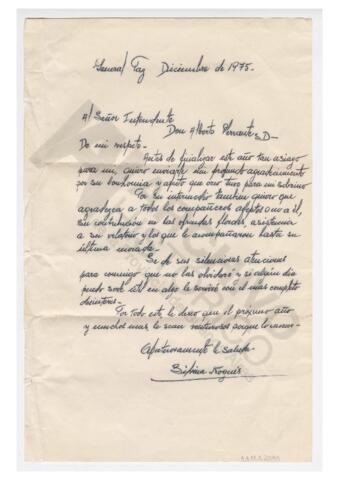 General Paz Diciembre de 1975.
Al Señor Intendente
Don Alberto S/D
De mi respeto.
Antes de finalizar este año tan aciago
para mi, quiero enviarle mi profundo agradecimiento
por su bonhomia y apoyo que Ud. tuvo para mi sobrino
Por su intermedio tambien quiero que
agradezca a todos los compañeros afectos a él,
su contribución en las ofrendas florales, asistencia
a su velatorio y los que le acompañaron hasta su
última morada.
Se de sus silenciosas atenciones
para conmigo que no las olvidaré y si algún día
puedo serle útil en algo lo serviré con el mas completo
desinterés.
Por todo esto le deseo que el próximo año
y muchos mas le sean venturosos porque lo merece.
Atentamente le saluda
Silvina Nogués